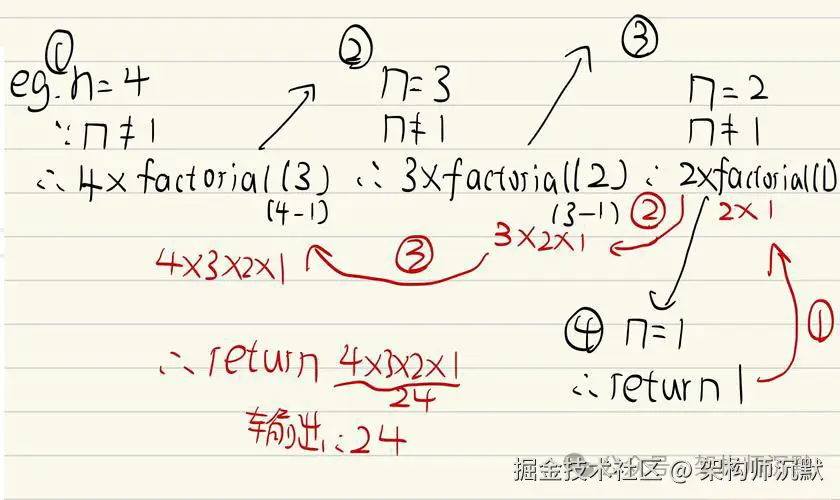 ①
eg. n=4
∵ n≠1
∴ 4×factorial(3)
(4-1)
②
n=3
n≠1
∴ 3×factorial(2)
(3-1)
③
n=2
n≠1
∴ 2×factorial(1)
④ n=1
∴ return 1
①
2×1
②
3×2×1
③
4×3×2×1
∴ return 4×3×2×1
24
输出: 24
公众号 · 架构师沉默
掘金技术社区 @ 架构师沉默